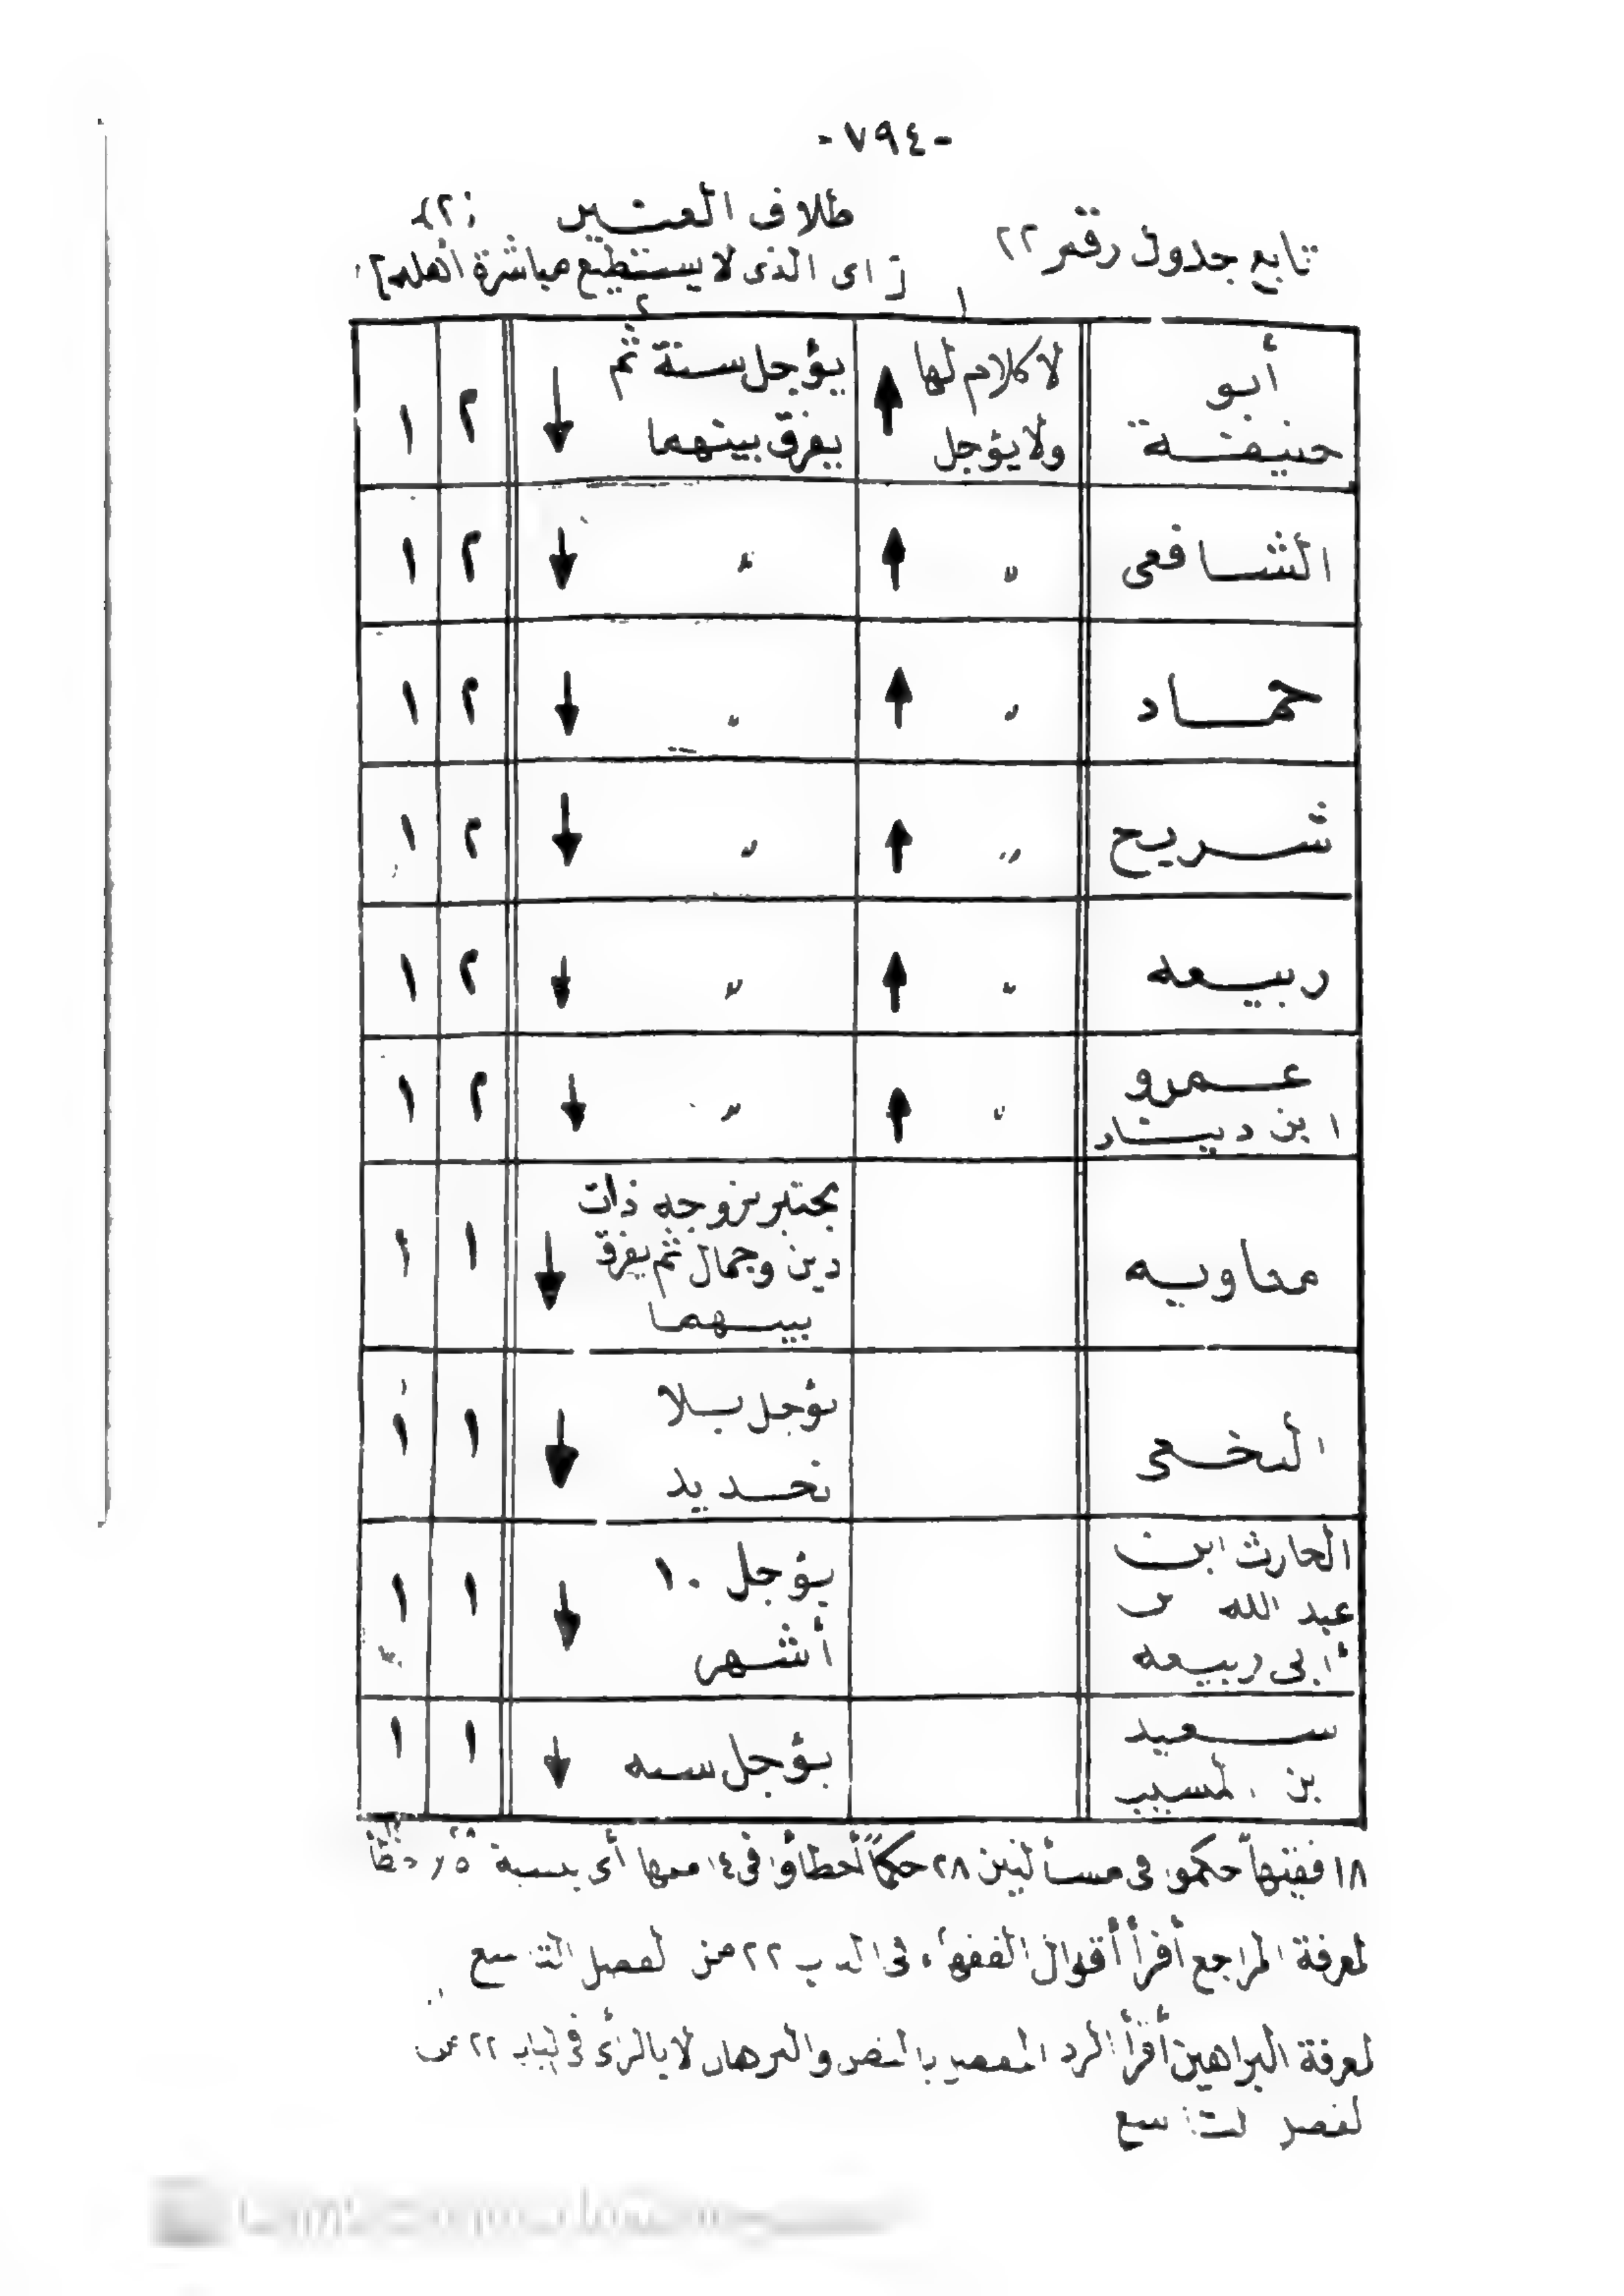 -٧٩٤-
تابع جدول رقم ٢٢
طلاق العنين (٢)
[ اى الذى لا يستطيع مباشرة أهله ]
١ ٢
أبو حنيفة | لا كلام لها ولا يؤجل ↑ | يؤجل سنة ثم يفرق بينهما ↓ | ٢ | ١
الشافعى | " ↑ | " ↓ | ٢ | ١
حماد | " ↑ | " ↓ | ٢ | ١
شريح | " ↑ | " ↓ | ٢ | ١
ربيعه | " ↑ | " ↓ | ٢ | ١
عمرو ابن دينار | " ↑ | " ↓ | ٢ | ١
معاويه | يختبر بزوجه ذات دين وجمال ثم يفرق بينهما ↓ | ١ | ١
النخعى | يؤجل بلا تحديد ↓ | ١ | ١
الحارث ابن عبد الله بن أبى ربيعه | يؤجل ١٠ أشهر ↓ | ١ | ١
سعيد بن المسيب | يؤجل سنه ↓ | ١ | ١
١٨ فقيهاً حكموا فى مسألتين ٢٨ حكماً أخطأوا فى ١٤ منها أى بنسبة
لمعرفة المراجع أقرأ أقوال الفقهاء فى الباب ٢٢ من الفصل التاسع
لمعرفة البراهين أقرأ الرد المفصل بالنص والبرهان لا بالرأى فى الباب ٢٢ من
الفصل التاسع